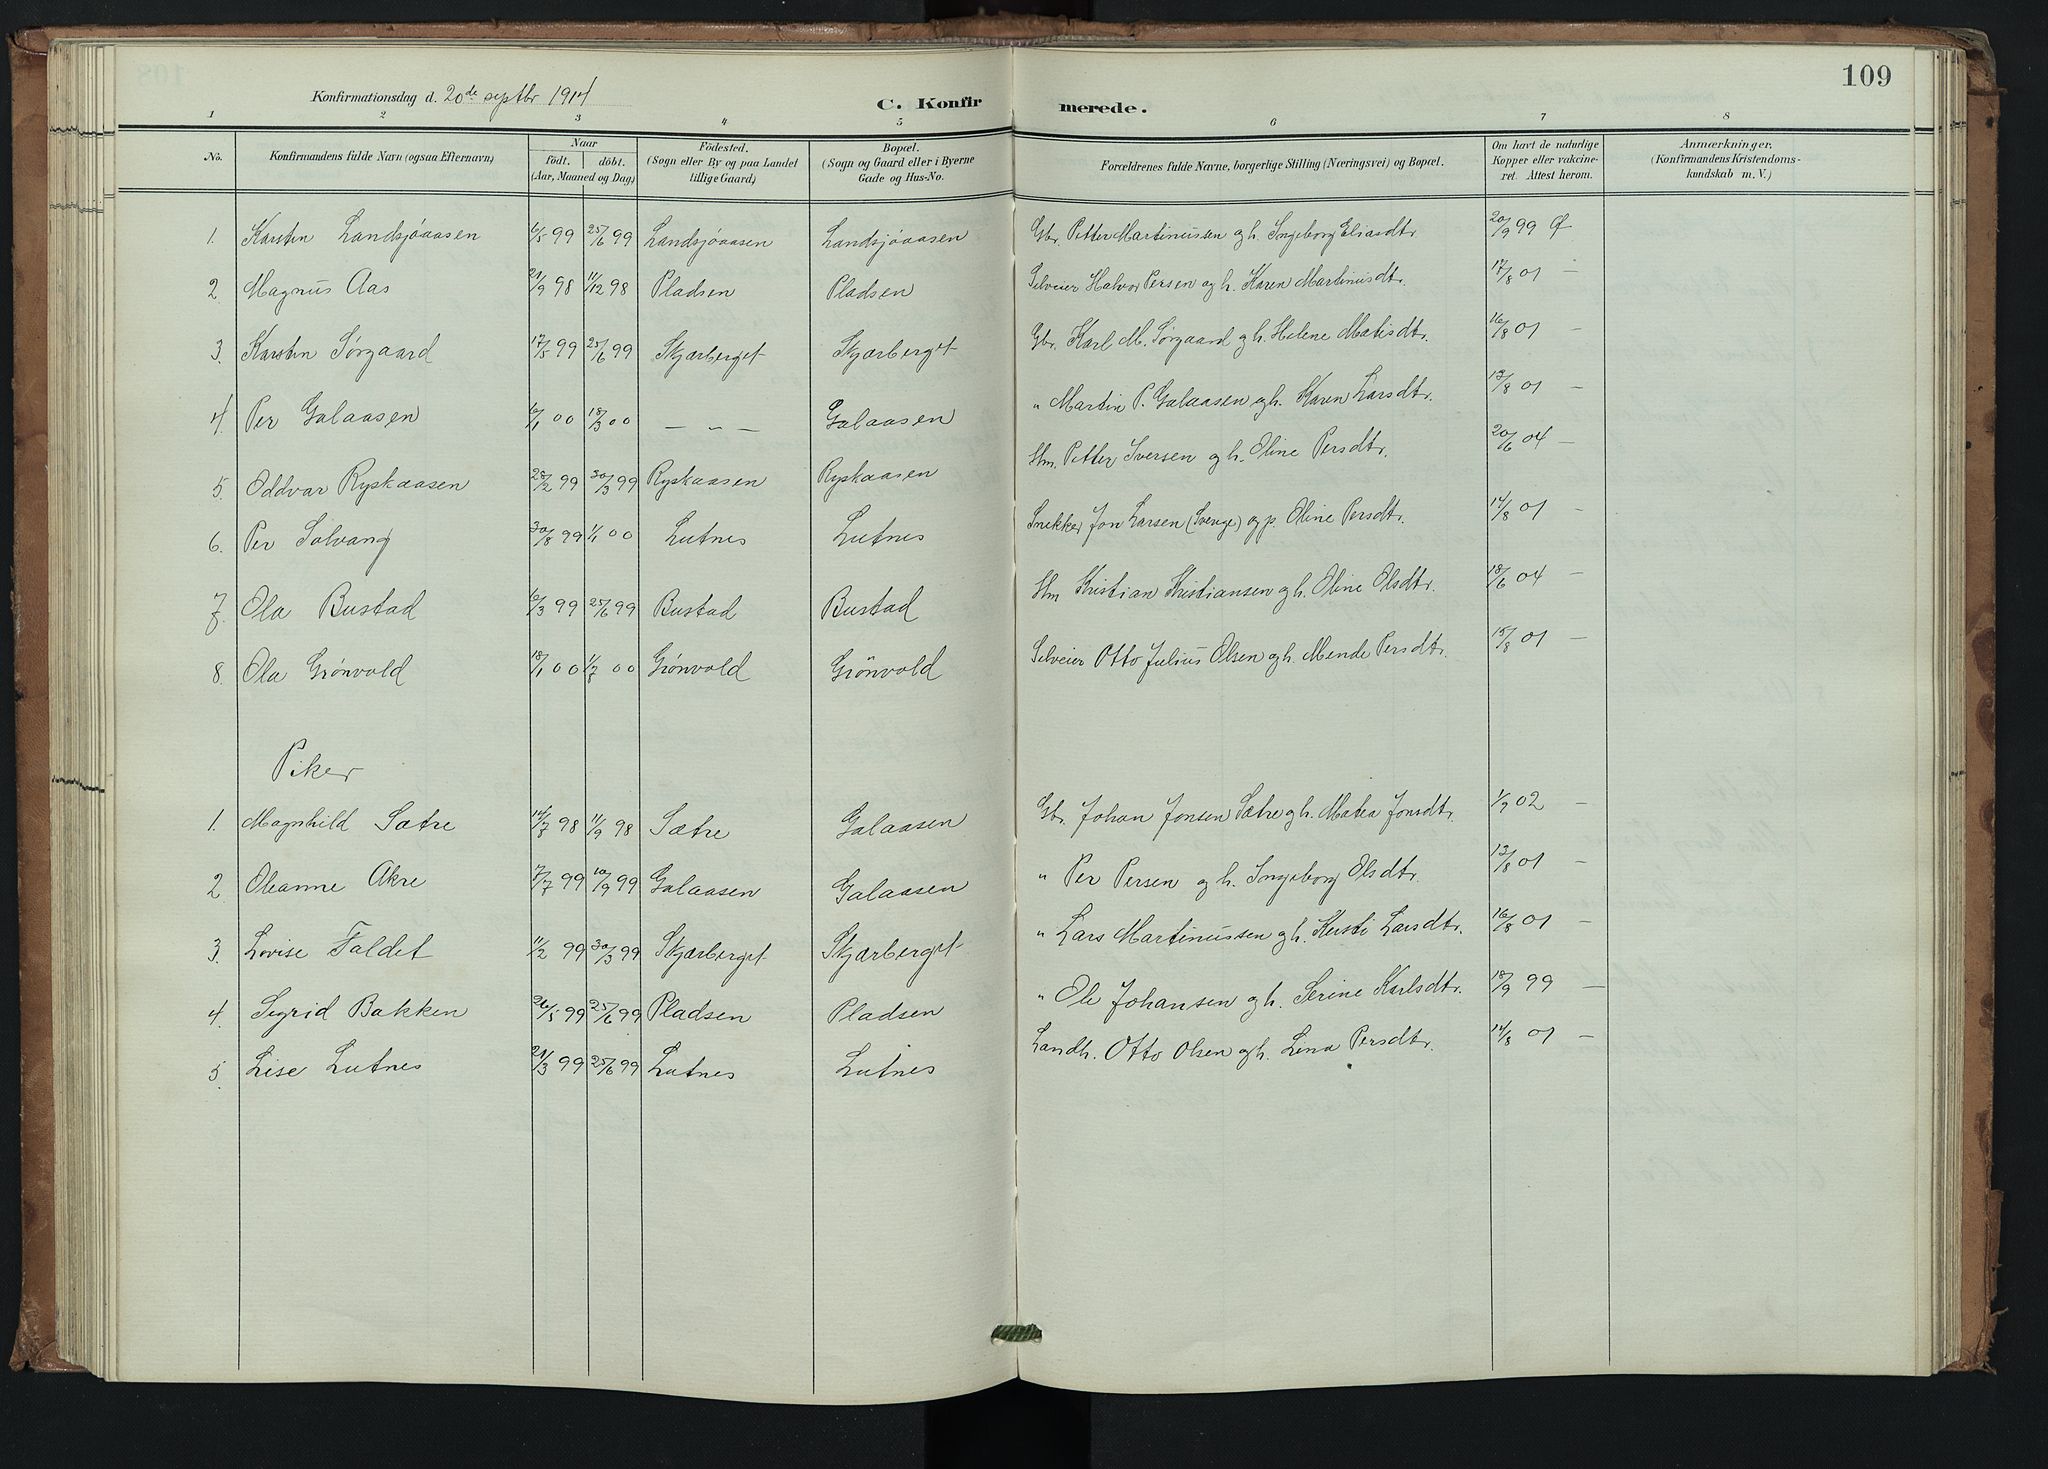 Konfirmationsdag d. 20de septbr 1914 C. Konfirmerede. 109
1 2 3 4 5 6 7 8
No. Konfirmandens fulde Navn (ogsaa Efternavn) Naar födt. döbt. (Aar, Maaned og Dag) Födested. (Sogn eller By og paa Landet tillige Gaard) Bopæl. (Sogn og Gaard eller i Byerne Gade og Hus-No. Forældrenes fulde Navne, borgerlige Stilling (Næringsvei) og Bopæl. Om havt de naturlige Kopper eller vakcineret. Attest herom. Anmærkninger. (Konfirmandens Kristendomskundskab m. V.)
1. Karsten Landsjøaasen 6/5 99 25/6 99 Landsjøaasen Landsjøaasen Gbr. Petter Martinussen og h. Ingeborg Eliasdtr. 20/9 99 Ø
2 Magnus Aas 21/9 98 11/12 98 Pladsen Pladsen Selveier Halvor Persen og h. Karen Martinusdtr. 17/8 01 –
3. Karsten Sørgaard 17/5 99 25/6 99 Skjærberget Skjærberget Gbr. Karl M. Sørgaard og h. Helene Matisdtr. 16/8 01 –
4. Per Galaasen 6/1 00 18/3 00 — „ — Galaasen „ Martin P. Galaasen og h. Karen Larsdtr. 13/8 01 –
5. Oddvar Ryskaasen 28/2 99 30/3 99 Ryskaasen Ryskaasen Hm. Petter Iversen og h. Oline Persdtr. 20/6 04 –
6. Per Solvang 30/8 99 1/1 00 Lutnes Lutnes Snekker Jon Larsen (Sverige) og p. Oline Persdtr. 14/8 01 –
7. Ola Bustad 6/3 99 25/6 99 Bustad Bustad Hm Kristian Kristiansen og h. Oline Olsdtr. 18/6 04 –
8. Ola Grønvold 18/1 00 1/7 00 Grønvold Grönvold Selveier Otto Julius Olsen og h. Mende Persdtr. 15/8 01 –
Piker
1. Magnhild Sætre 14/7 98 11/9 98 Sætre Galaasen Gbr. Johan Jonsen Sætre og h. Matea Jonsdtr. 1/9 02 –
2. Oleanne Akre 7/7 99 10/9 99 Galaasen Galaasen „ Per Persen og h. Ingeborg Olsdtr. 13/8 01 –
3. Lovise Faldet 11/2 99 30/3 99 Skjærberget Skjærberget „ Lars Martinussen og h. Kersti Larsdtr. 16/8 01 –
4. Sigrid Bakken 26/5 99 25/6 99 Pladsen Pladsen „ Ole Johansen og h. Serine Karlsdtr. 18/9 99 –
5. Lise Lutnes 21/3 99 25/6 99 Lutnes Lutnes Landh. Otto Olsen og h. Lina Persdtr. 14/8 01 –